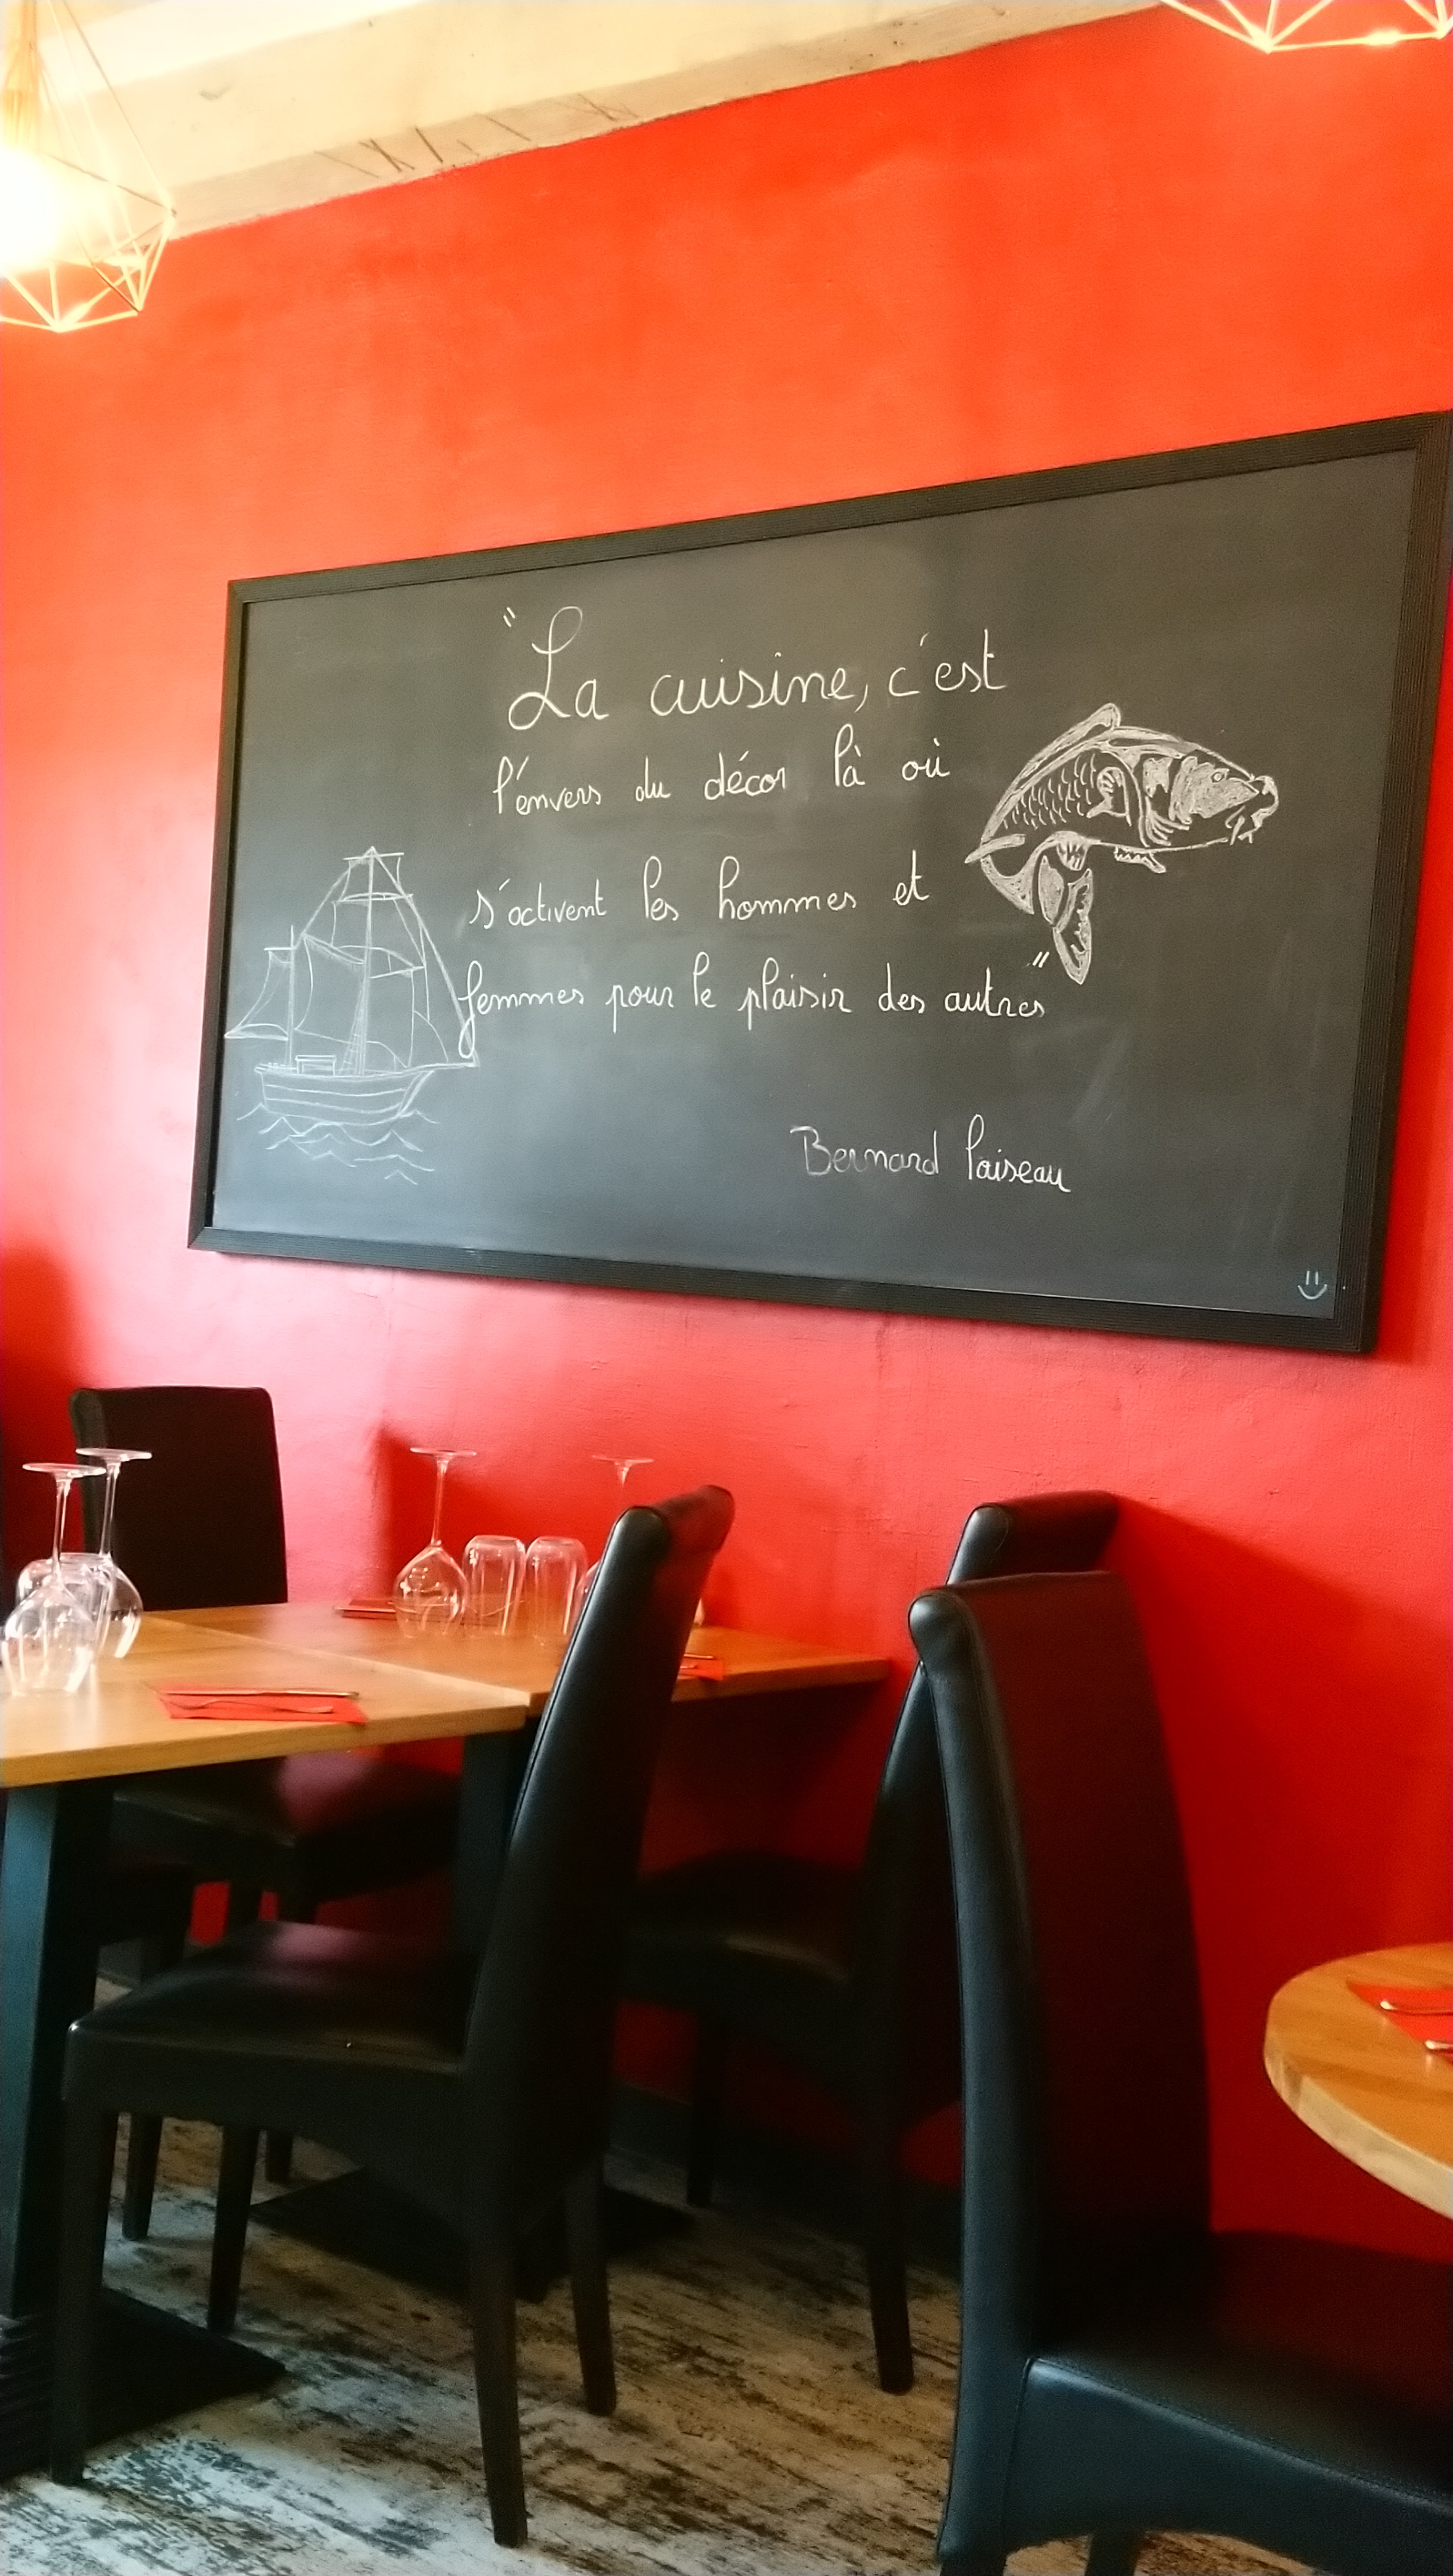 "La cuisine, c'est
l'envers du décor là où
s'activent les hommes et
femmes pour le plaisir des autres"
Bernard Loiseau